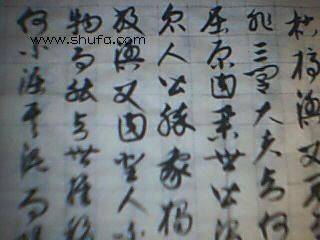 枯槁漁父見
非三閭大夫與何
屈原曰舉世皆濁
眾人皆醉我獨
放漁父曰聖人不
物而能與世推移
何不淈其泥而揚
www.shufa.com